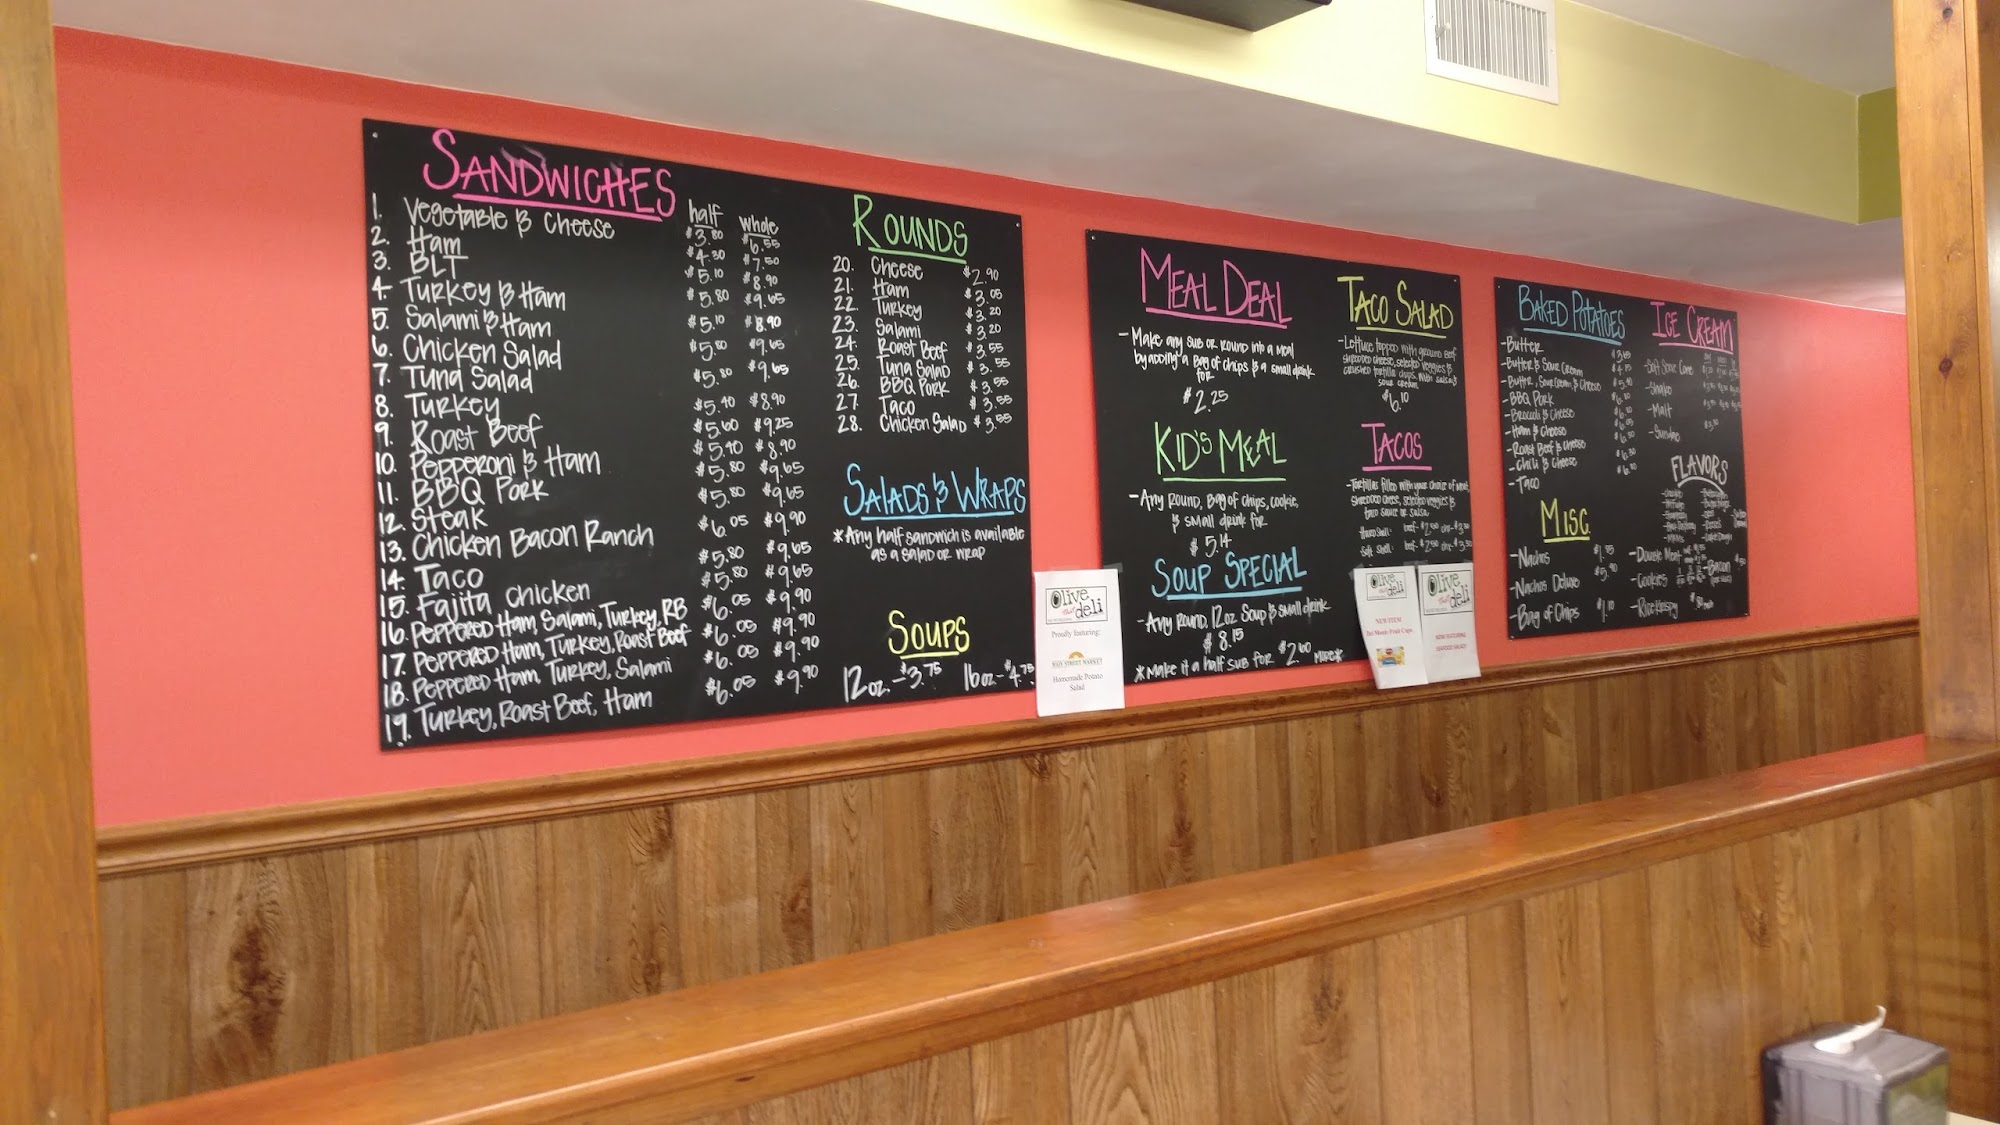 SANDWICHES
half whole
1. Vegetable & Cheese $3.80 $6.55
2. Ham $4.30 $7.50
3. BLT $5.10 $8.90
4. Turkey & Ham $5.80 $9.65
5. Salami & Ham $5.10 $8.90
6. Chicken Salad $5.80 $9.65
7. Tuna Salad $5.80 $9.65
8. Turkey $5.40 $8.90
9. Roast Beef $5.60 $9.25
10. Pepperoni & Ham $5.40 $8.90
11. BBQ Pork $5.80 $9.65
12. Steak $5.80 $9.65
13. Chicken Bacon Ranch $6.05 $9.90
14. Taco $5.80 $9.65
15. Fajita Chicken $5.80 $9.65
16. Peppered Ham, Salami, Turkey, RB $6.05 $9.90
17. Peppered Ham, Turkey, Roast Beef $6.05 $9.90
18. Peppered Ham, Turkey, Salami $6.05 $9.90
19. Turkey, Roast Beef, Ham $6.05 $9.90
ROUNDS
20. Cheese $2.90
21. Ham $3.05
22. Turkey $3.20
23. Salami $3.20
24. Roast Beef $3.55
25. Tuna Salad $3.55
26. BBQ Pork $3.55
27. Taco $3.55
28. Chicken Salad $3.55
SALADS & WRAPS
*Any half sandwich is available
as a salad or wrap
SOUPS
12oz. - $3.75 16oz - $4.75
Olive
that
deli
Proudly featuring:
MAIN STREET MARKET
Homemade Potato
Salad
MEAL DEAL
- Make any sub or round into a meal
by adding a Bag of chips & a small drink
for
$2.25
KID'S MEAL
- Any Round, Bag of chips, cookie,
& small drink for
$5.14
SOUP SPECIAL
- Any Round, 12oz Soup & small drink
$8.15
*Make it a half sub for $2.60 more*
TACO SALAD
- Lettuce topped with ground beef
shredded cheese, selected veggies &
crushed tortilla chips with salsa &
sour cream.
$6.10
TACOS
- Tortillas filled with your choice of meat,
shredded cheese, selected veggies &
taco sauce or salsa.
Hard Shell:
Soft Shell:
Olive
that
deli
NEW ITEM
Del Monte Fruit Cups
Olive
that
deli
NOW FEATURING
SEAFOOD SALAD!
BAKED POTATOES
- Butter
- Butter & Sour Cream
- Butter, Sour Cream, & Cheese
- BBQ Pork
- Broccoli & Cheese
- Ham & Cheese
- Roast Beef & Cheese
- Chili & Cheese
- Taco
MISC.
- Nachos $1.75
- Nachos Deluxe $5.90
- Bag of Chips $1.10
ICE CREAM
- Soft Serve Cone
- Shake
- Malt
- Sundae
FLAVORS
- Double Meat
- Bacon
- Cookies
- Rice Krispy